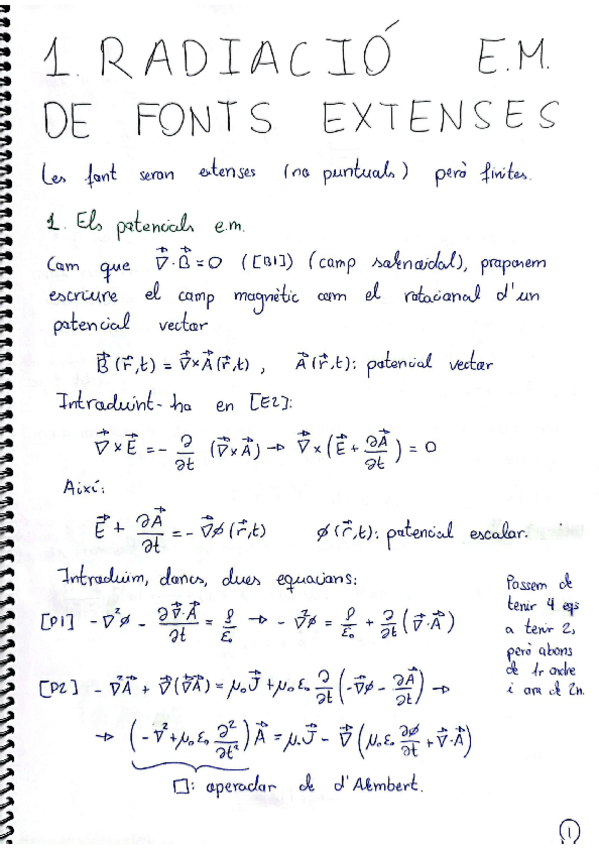 1. RADIACIÓ E.M.
DE FONTS EXTENSES
Les font seran extenses (no puntuals) però finites.
1. Els potencials e.m.
Com que ∇⃗·B⃗=0 ([B1]) (camp solenoidal), proposem
escriure el camp magnètic com el rotacional d'un
potencial vector
B⃗(r⃗,t) = ∇⃗×A⃗(r⃗,t) , A⃗(r⃗,t): potencial vector
Introduint-ho en [E2]:
∇⃗×E⃗ = - ∂/∂t (∇⃗×A⃗) → ∇⃗×(E⃗ + ∂A⃗/∂t) = 0
Així:
E⃗ + ∂A⃗/∂t = -∇⃗ϕ(r⃗,t) ϕ(r⃗,t): potencial escalar.
Introduim, doncs, dues equacions:
[P1] -∇²ϕ - ∂∇⃗·A⃗/∂t = ρ/ε₀ → -∇²ϕ = ρ/ε₀ + ∂/∂t (∇⃗·A⃗)
Passem de
tenir 4 eqs
a tenir 2,
però abans
de 1r ordre
i ara de 2n.
[P2] -∇²A⃗ + ∇⃗(∇⃗A⃗) = μ₀J⃗ + μ₀ε₀ ∂/∂t (-∇⃗ϕ - ∂A⃗/∂t) →
→ (-∇² + μ₀ε₀ ∂²/∂t²) A⃗ = μ₀J⃗ - ∇⃗(μ₀ε₀ ∂ϕ/∂t + ∇⃗·A⃗)
□: operador de d'Alembert.
1